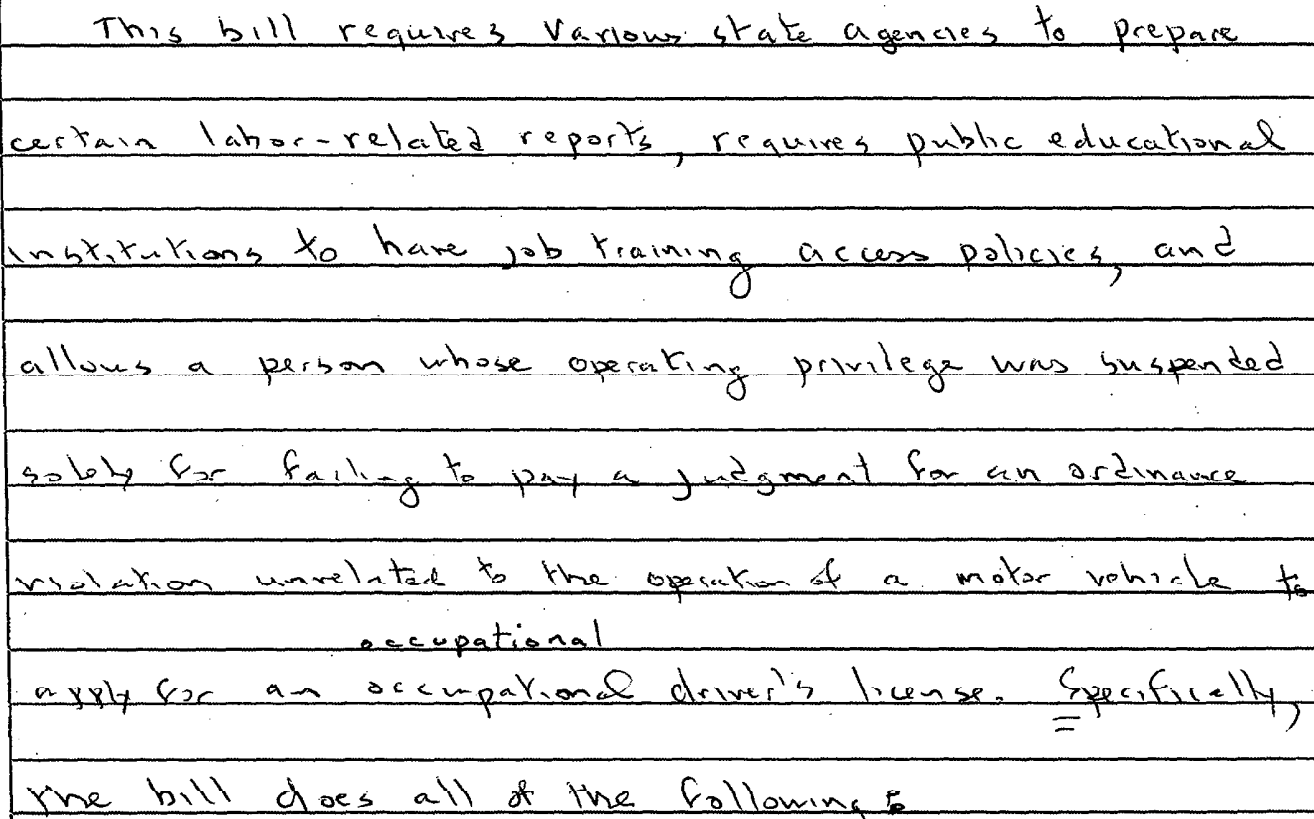 This bill requires various state agencies to prepare
certain labor-related reports, requires public educational
institutions to have job training access policies, and
allows a person whose operating privilege was suspended
solely for failing to pay a judgment for an ordinance
violation unrelated to the operation of a motor vehicle to
occupational
apply for an occupational driver's license. Specifically,
the bill does all of the following: